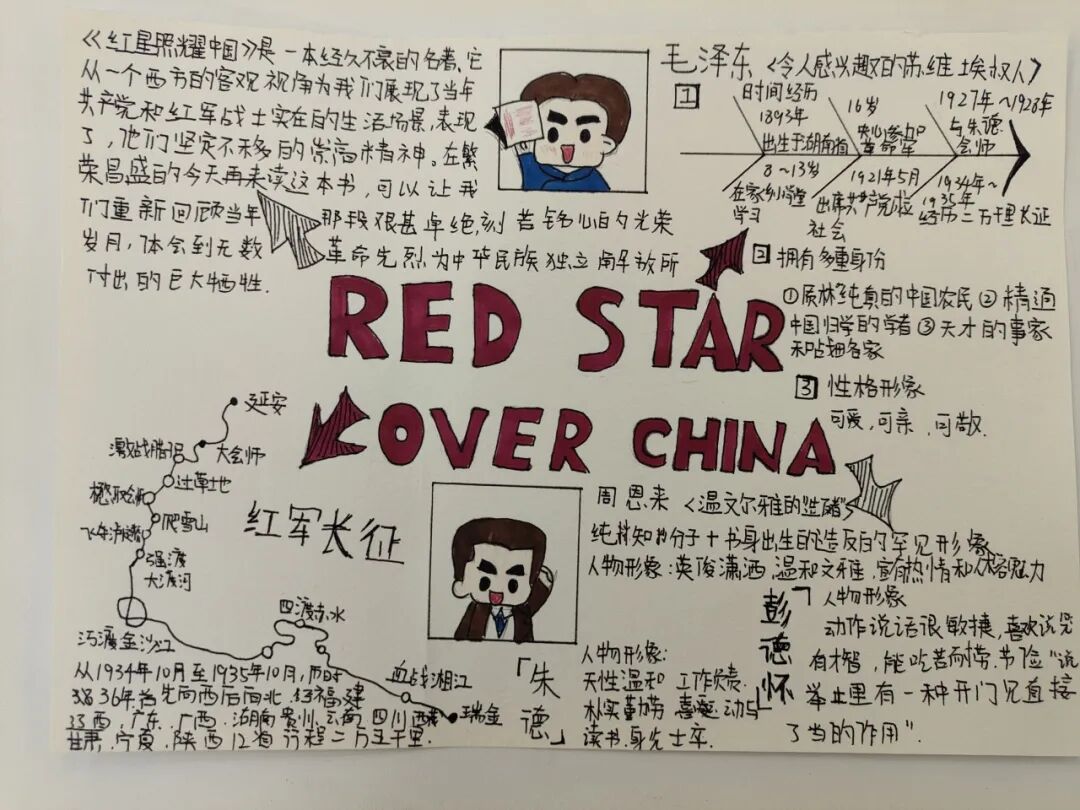 《红星照耀中国》是一本经久不衰的名著、它
从一个西方的客观视角为我们展现了当年
共产党和红军战士实在的生活场景,表现
了,他们坚定不移的崇高精神。在繁
荣昌盛的今天再来读这本书,可以让我
们重新回顾当年那段艰甚卓绝,刻苦铭心的光荣
岁月,体会到无数革命先烈为中华民族独立解放所
付出的巨大牺牲.
毛泽东《令人感兴趣的苏维埃权人》
1
时间经历
1893年
出生于湖南省
8~13岁
在家乡小学堂
学习
16岁
革命军
1921年5月
社会
1927年~1928年
与朱德
会师
1934年~
1935年
经历二万里长征
2 拥有多重身份
①质林纯真的中国农民②精通
中国归学的学者③天才的事家
和战细名家
3 性格形象
可爱,可亲,可敬.
RED STAR
OVER CHINA
红军长征
延安
大会师
激战腊子口
过草地
爬雪山
强渡
大渡河
巧渡金沙江
四渡赤水
血战湘江
瑞金
从1934年10月至1935年10月,历时
36年首先向西后向北,经福建
江西,广东,广西,湖南贵州,云南,四川西藏
甘肃,宁夏,陕西12省行程二万五千里.
周恩来《温文尔雅的"造反者"》
纯粹知识分子+书身出生的造反的罕见形象
人物形象:英俊潇洒,温和文雅,富有热情和人格魅力
「朱德」
人物形象:
天性温和 工作负责.
朴实勤劳 喜爱运动与
读书.身先士卒.
「彭德怀」
人物形象
动作说话很敏捷,喜欢说笑
有才智,能吃苦耐劳.节俭"说
举止里有一种开门见直接
了当的作用".